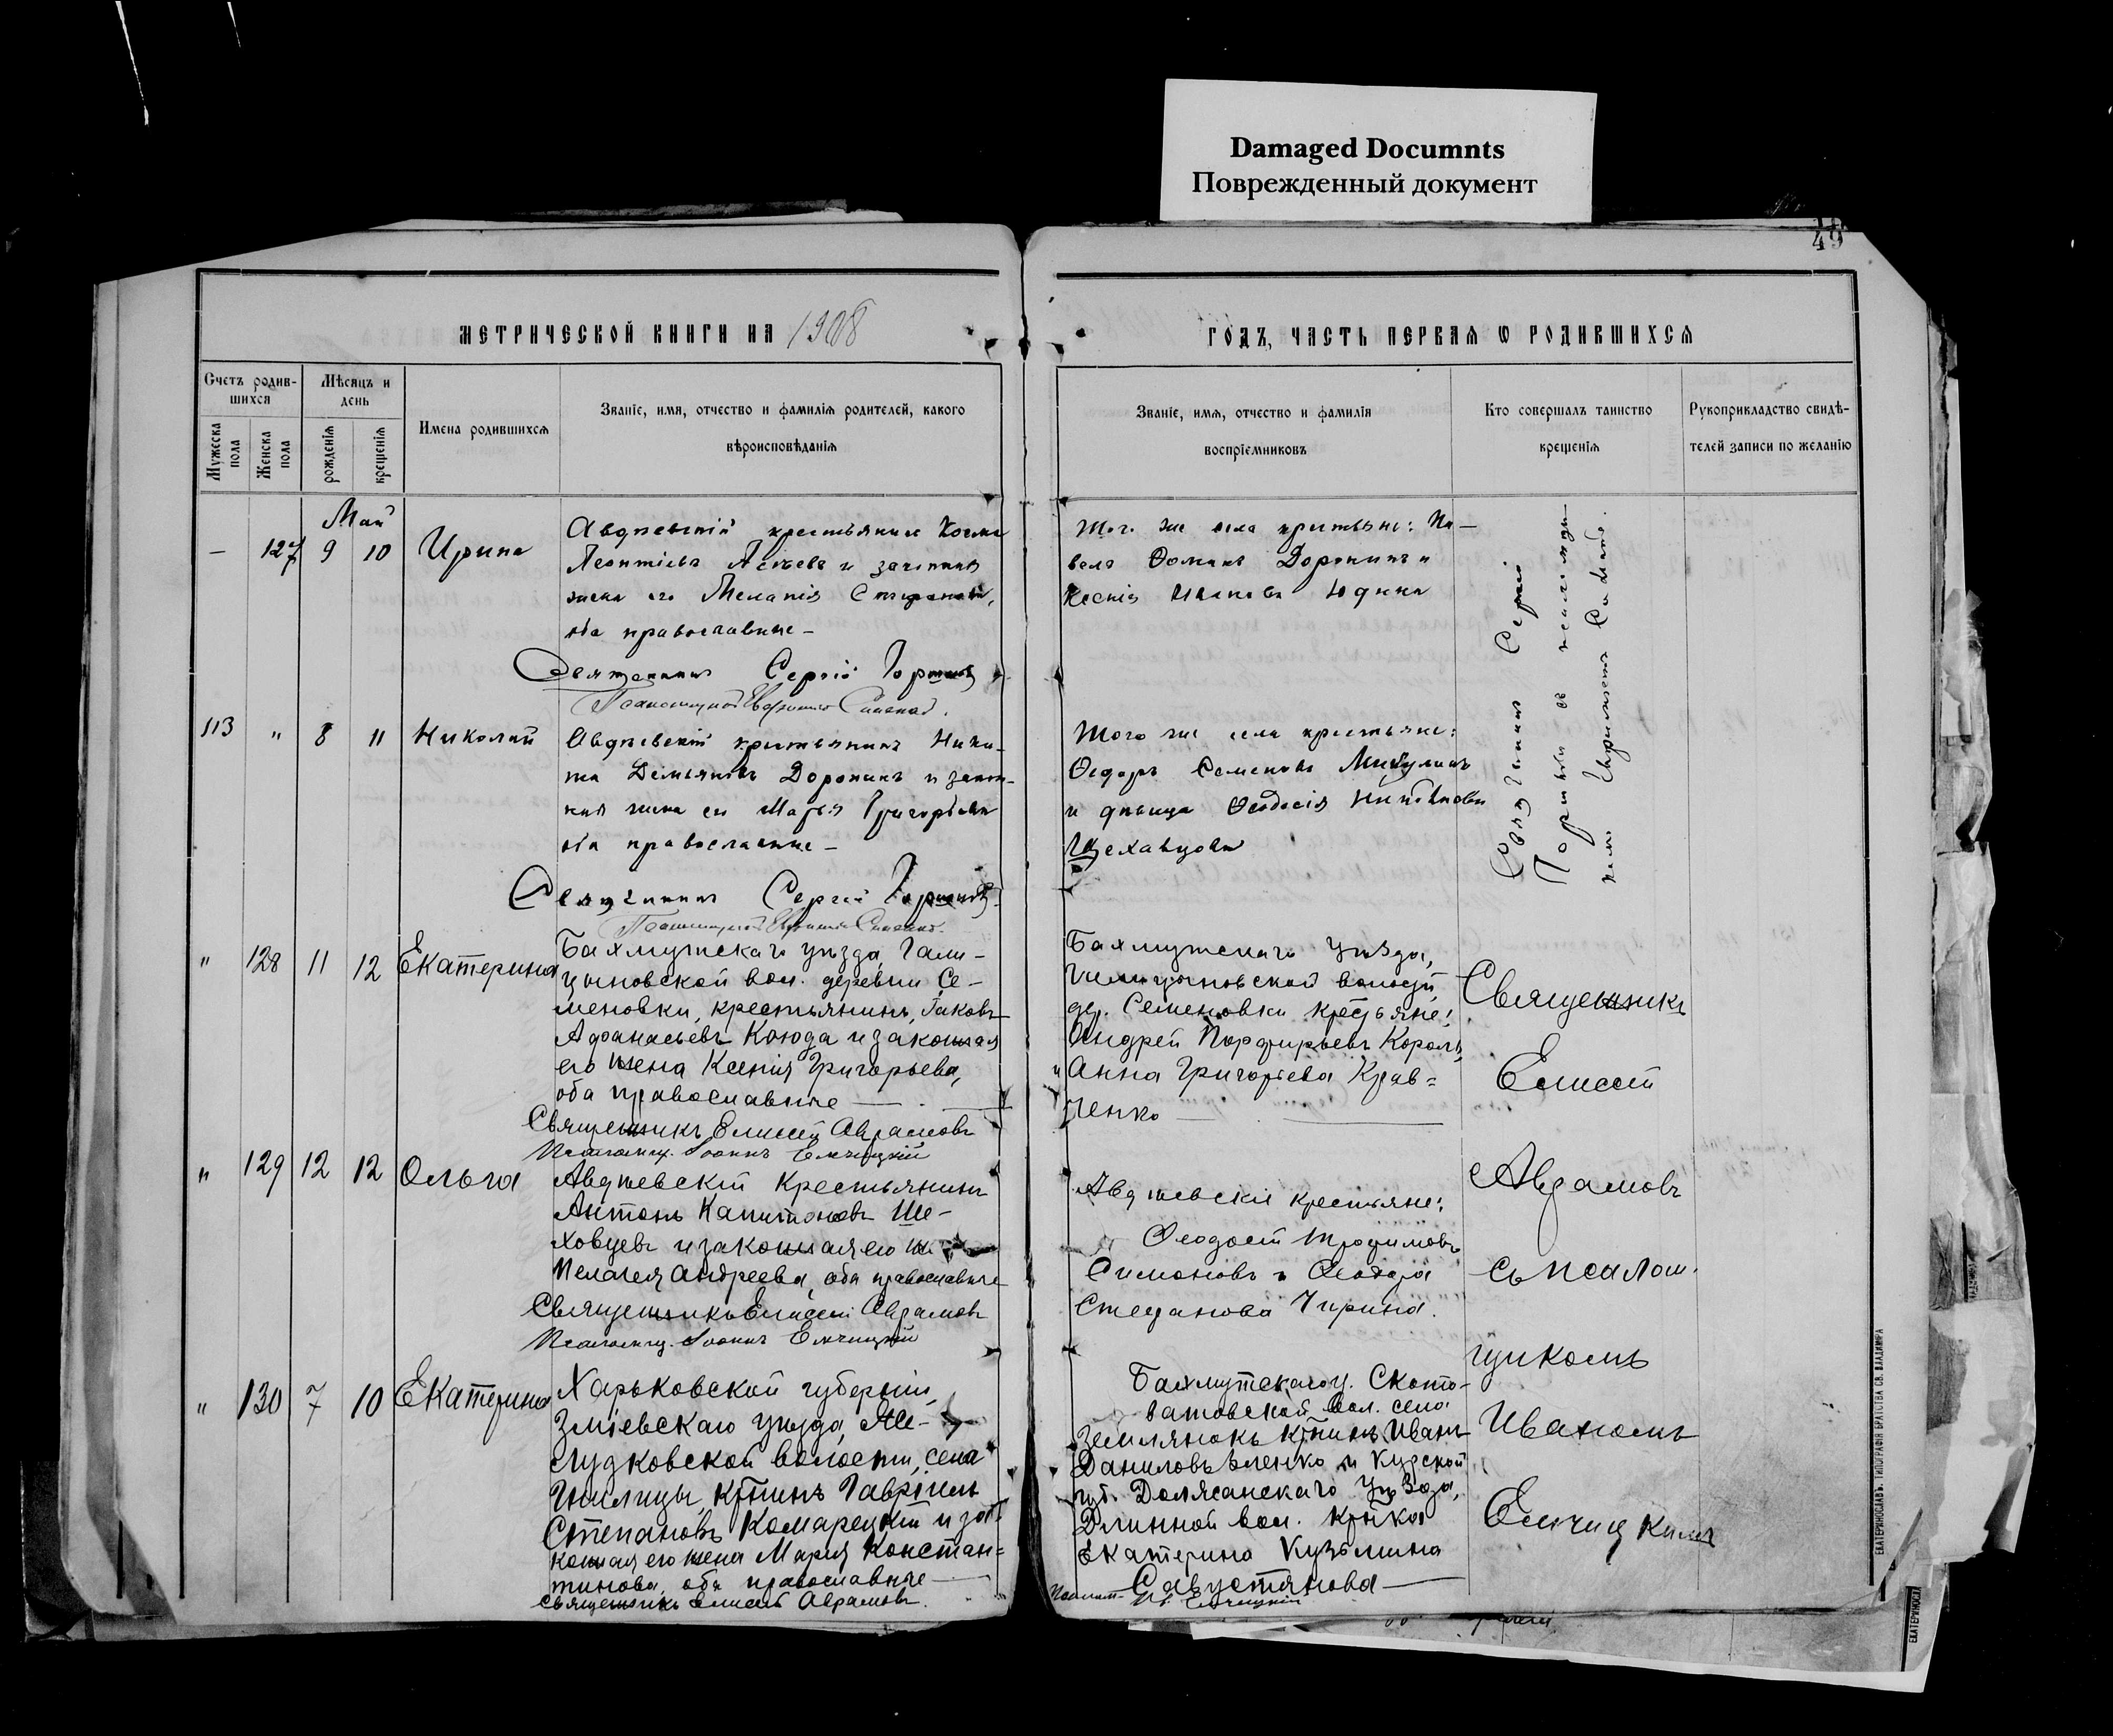 Damaged Documnts
Поврежденный документ
49
МЕТРИЧЕСКОЙ КНИГИ НА 1908
ГОДЪ, ЧАСТЬ ПЕРВАЯ Ѡ РОДИВШИХСЯ
Счетъ родив-
шихся
Мужеска пола
Женска пола
Мѣсяцъ и
день
рожденія
крещенія
Имена родившихся
Званіе, имя, отчество и фамилія родителей, какого
вѣроисповѣданія
Званіе, имя, отчество и фамилія
воспріемниковъ
Кто совершалъ таинство
крещенія
Рукоприкладство свидѣ-
телей записи по желанію
Май
— 127 9 10 Ирина
Авдѣевскій крестьянинъ Косма
Леонтіевъ и законная
жена его Меланія
оба православные –
Священникъ Сергій
Того же села крестьяне: Па-
велъ Доронинъ и
Ксенія Иванова Юдина
Священникъ Сергій
съ псаломщи-
комъ
113 " 8 11 Николай
Авдѣевскій крестьянинъ Ники-
та Демьяновъ Доронинъ и закон-
ная жена его Марія Григорьева
оба православные –
Священникъ Сергій
Того же села крестьяне:
Ѳедоръ Семеновъ Микулинъ
и дѣвица Ѳеодосія
" 128 11 12 Екатерина
Бахмутскаго уѣзда, Гали-
цыновской вол. деревни Се-
меновки, крестьянинъ, Іаковъ
Афанасьевъ Коюда и законная
его жена Ксенія Григорьева,
оба православные —
Священникъ Елисей Аврамовъ
Псаломщ. Іоаннъ Елчицкій
Бахмутскаго уѣзда,
Галицыновской волости,
дер. Семеновки крестьяне:
Андрей Порфирьевъ Король
и Анна Григорьева Крав=
ченко —
Священникъ
Елисей
Аврамовъ
съ псалом-
щикомъ
Иваномъ
Елчицкимъ
" 129 12 12 Ольга
Авдѣевскій крестьянинъ
Антонъ Капитоновъ Ше-
ховцевъ и законная его
Пелагея Андреева, оба православные
Священникъ Елисей Аврамовъ
Псаломщ. Іоаннъ Елчицкій
Авдѣевскіе крестьяне:
Ѳеодосій Трофимовъ
Симоновъ и
Стефанова Чирина.
" 130 7 10 Екатерина
Харьковской губерніи,
Зміевскаго уѣзда,
волости, села
кр-нинъ Гавріилъ
Степановъ Комарецкій и за-
конная его жена Марія Констан=
тинова, оба православные —
Священникъ Елисей Аврамовъ.
Бахмутскаго у. Ското-
ватовской вол. села
Землянокъ кр-нинъ Иванъ
Даниловъ и Курской
губ. уѣзда,
Длинной вол. кр-нка
Екатерина Кузьмина
Савустянова —
Псалом. Ив. Елчицкій
ЕКАТЕРИНОСЛАВЪ. ТИПОГРАФІЯ БРАТСТВА СВ. ВЛАДИМІРА